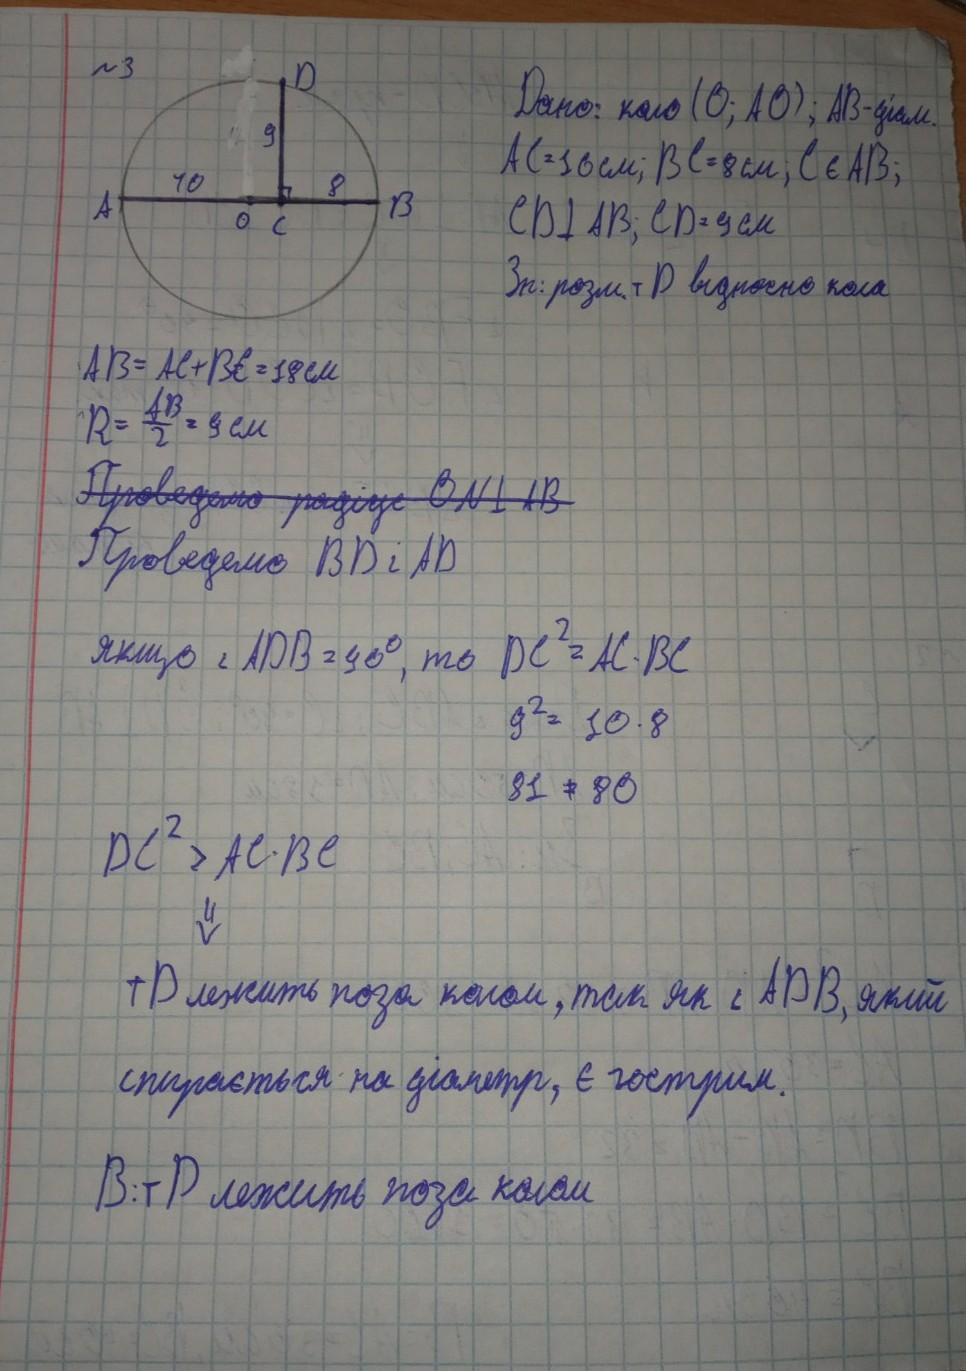 №3
D
9
10
8
A
O
C
B
Дано: коло (O; AO); AB-діам.
AC=10см; BC=8см; C∈AB;
CD⊥AB; CD=9см
Зн: розм. т D відносно кола
AB= AC+BC=18см
R= AB/2 = 9см
Проведемо радіус ON⊥AB
Проведемо BD і AD
якщо ∠ADB=90°, то DC²=AC·BC
9²= 10·8
81 ≠ 80
DC² > AC·BC
⇓
т D лежить поза колом, так як ∠ADB, який
спирається на діаметр, є гострим.
В: т D лежить поза колом